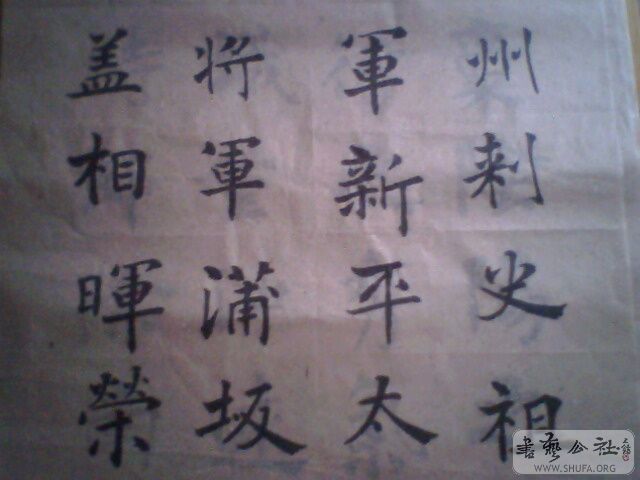 州刺史祖
軍新平太
将軍蒲坂
盖相暉榮
書藝公社
WWW.SHUFA.ORG